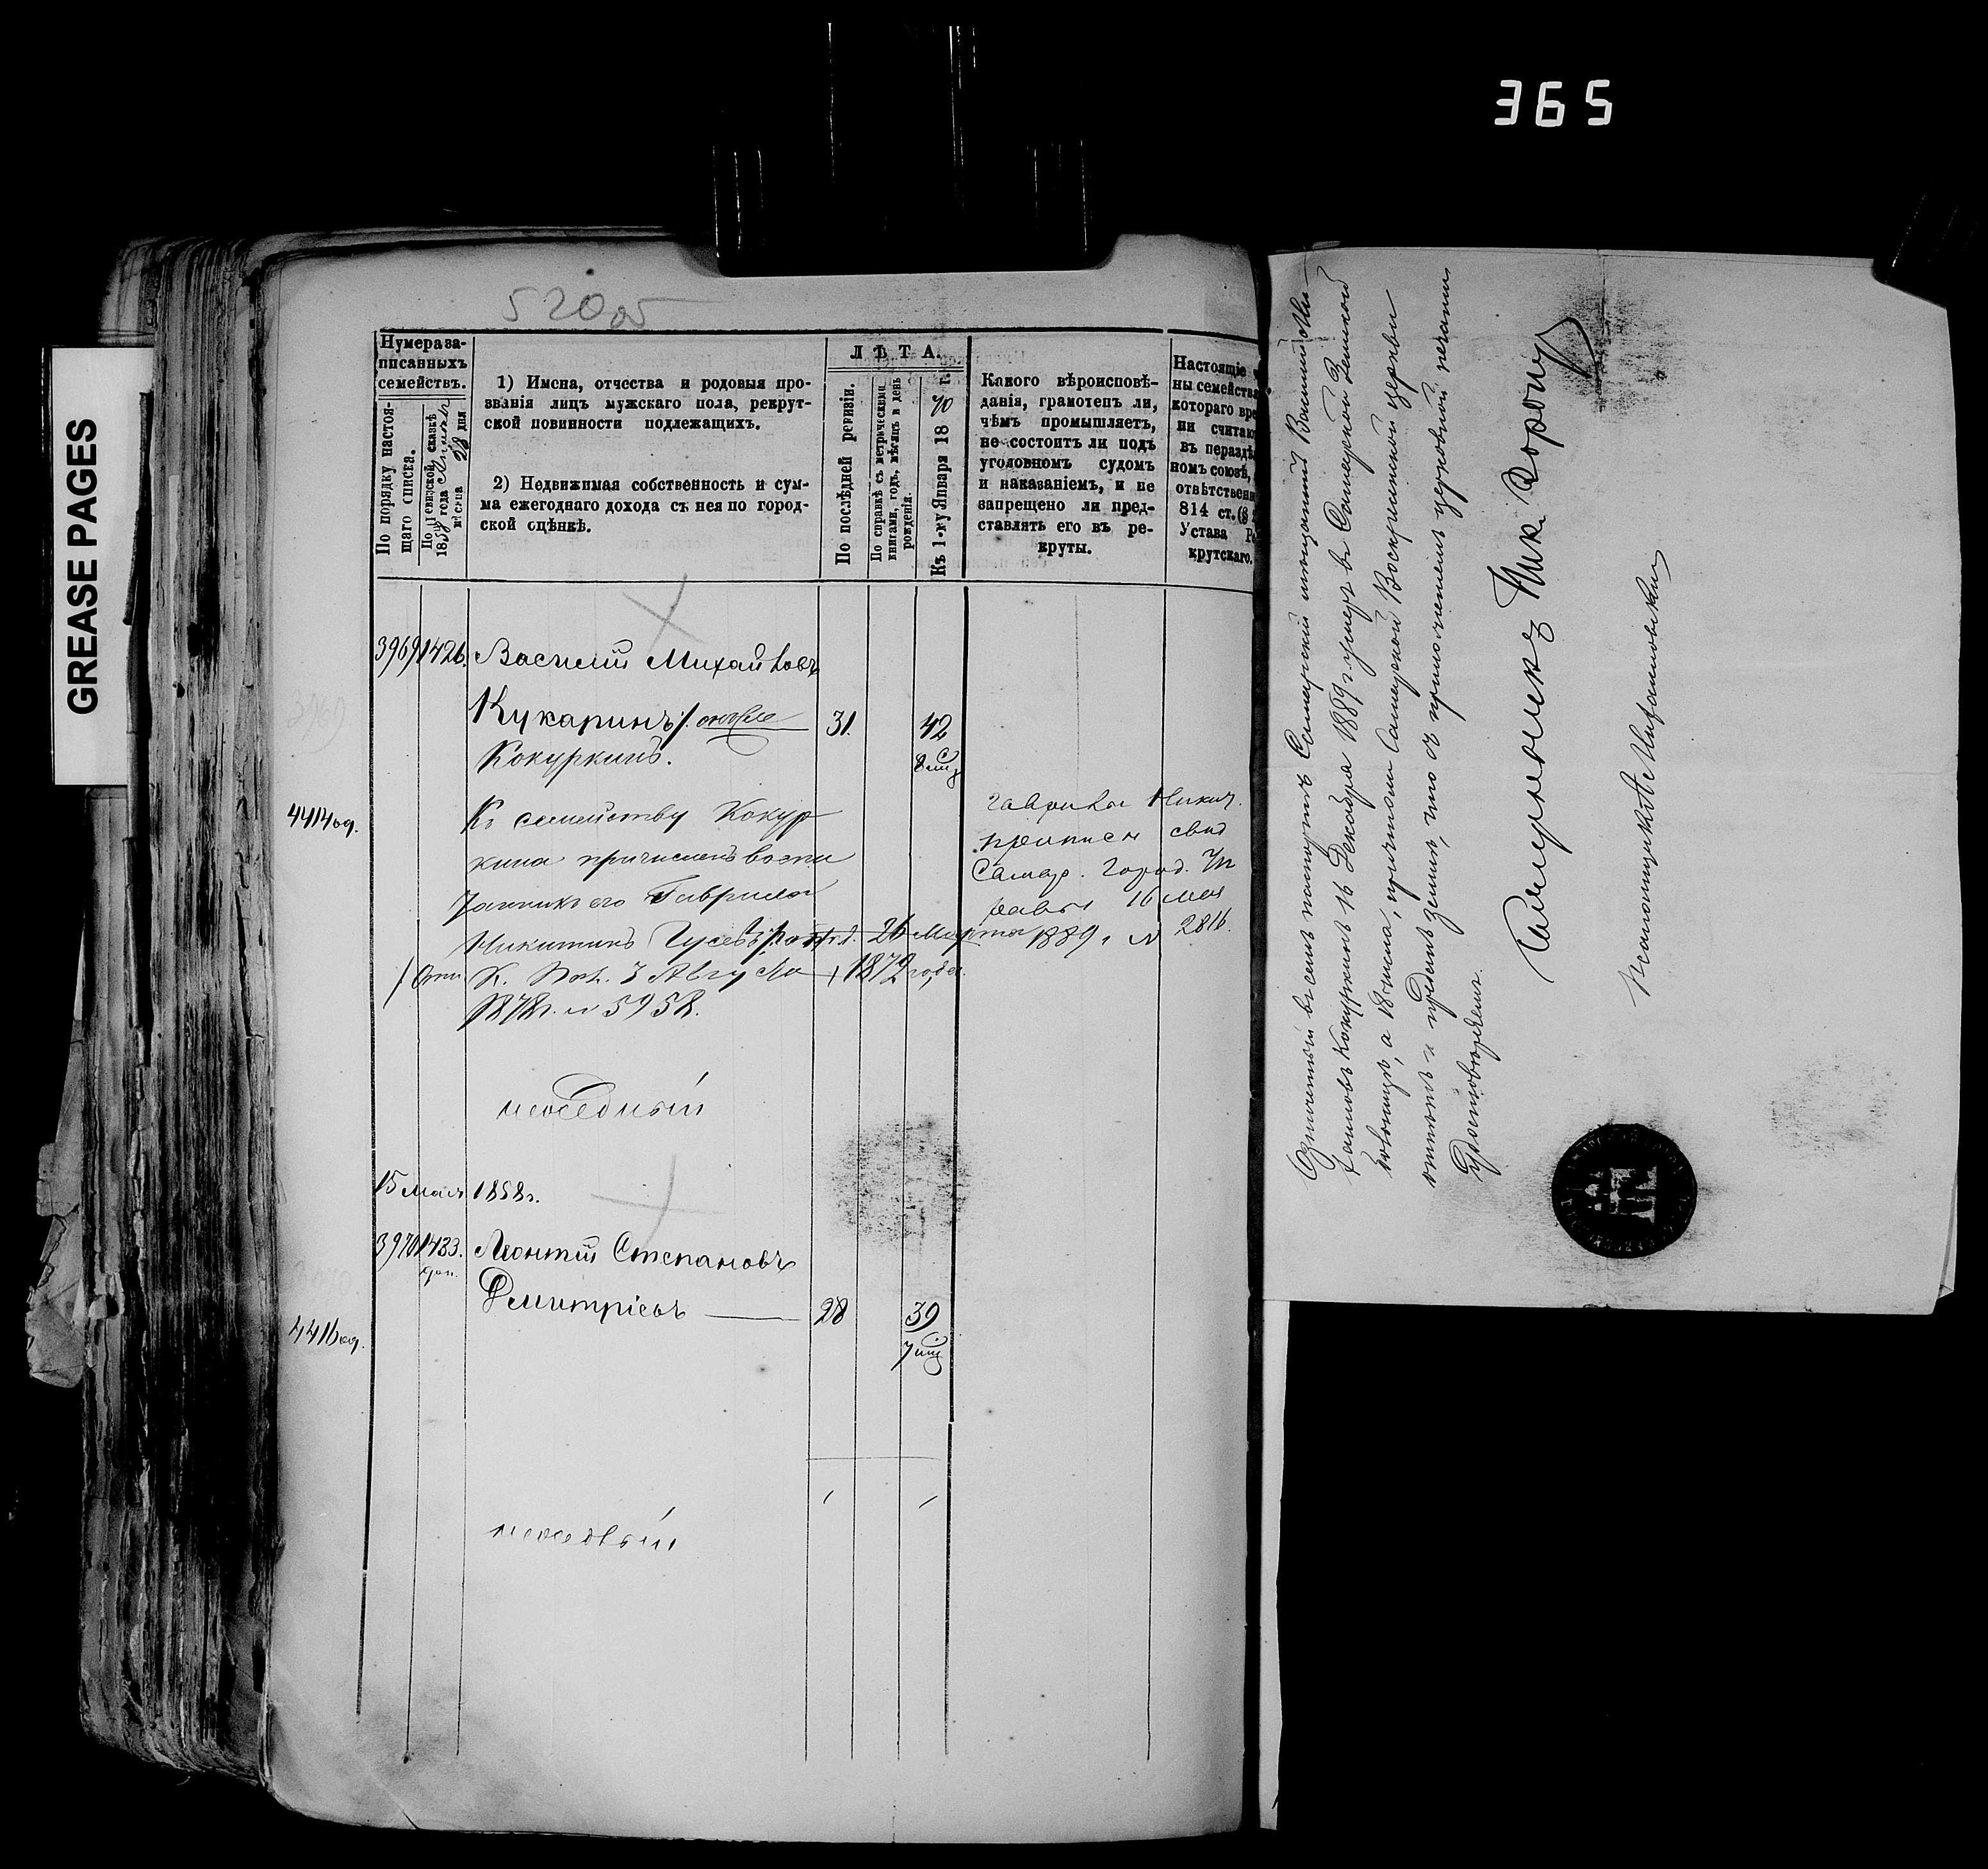 365
GREASE PAGES
52005
Нумера за-
писанныхъ
семействъ.
По порядку настоя-
щаго списка.
По ревизской сказкѣ
18 года
мѣсяца 28 дня
1) Имена, отчества и родовыя про-
званія лицъ мужскаго пола, рекрут-
ской повинности подлежащихъ.
2) Недвижимая собственность и сум-
ма ежегоднаго дохода съ нея по город-
ской оцѣнкѣ.
ЛѢТА.
По послѣдней ревизіи.
По справкѣ съ метрическими
книгами, годъ, мѣсяцъ и день
рожденія.
Къ 1-му Января 1870 г.
Какого вѣроисповѣ-
данія, грамотенъ ли,
чѣмъ промышляетъ,
не состоитъ ли подъ
уголовномъ судомъ
и наказаніемъ, и не
запрещено ли пред-
ставлять его въ ре-
круты.
Настоящіе ч
ны семейства
котораго вре
ни считаю
въ нераздѣ
номъ союзѣ,
отвѣтственн
814 ст. (§
Устава Ре
крутскаго.
3969 1426. Василій Михайловъ
Кукаринъ 31. 42
Кокуркинъ.
4414
Къ семейству Кокур
кина причисленъ воспи
танникъ его Гаврила
Никитинъ Гусевъ 26 Марта
К. Пол. 3 Августа 1872 года
1878г. № 5958.
Гаврила Никит.
приписн свид
Самар. Город. Уп
равы 16 Мая
1889 г № 2816.
15 мая 1858г.
3970 1433. Леонтій Степановъ
доп.
Дмитріевъ 28 39
4416
Означенный въ семъ паспортѣ Самарскій мѣщанинъ Василій Ми-
хайловъ Кокуркинъ 16 Декабря 1889 г. умеръ въ Самарской Земской
больницѣ, а 18 числа, причтомъ Самарской Воскресенской церкви
отпѣтъ и преданъ землѣ, что съ приложеніемъ церковной печати
удостовѣряемъ.
Священникъ Ник. Воронц
Псаломщикъ А. Митропольскій